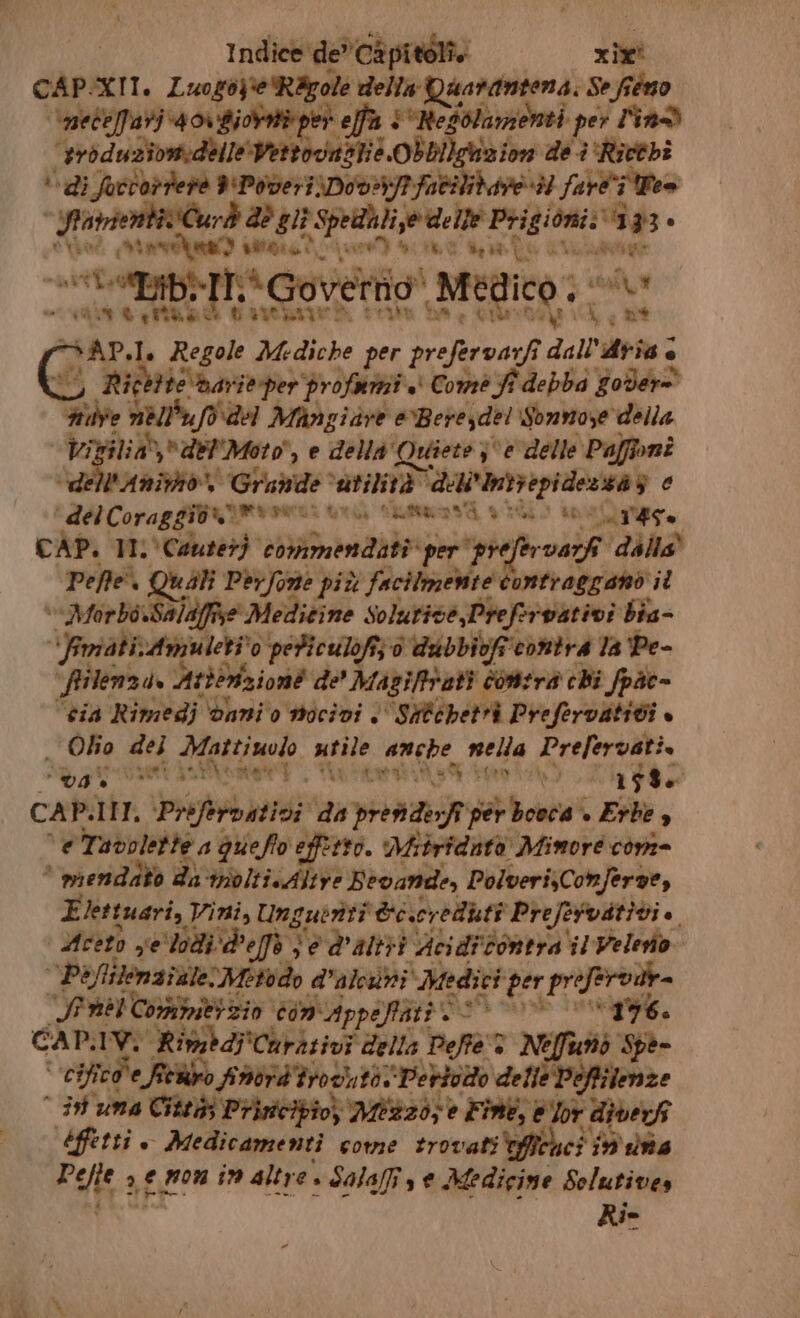 Indice de' Capitoli. xix
CAP. XII. Luogo, e Regole della Quarantena. Se sieno
necessarj 40. giorni per essa? Regolamenti per l'in-
troduzion delle Vettovaglie. Obbligazion de i Ricchi
di soccorrere i Poveri. Doversi facilitare il fare i Te-
stamenti. Cura de gli Spedali, e delle Prigioni. 133.
Lib. II. Governo Medico.
CAP. I. Regole Mediche per preservarsi dall'Aria.
Ricette varie per profumi. Come si debba gover-
nare nell'uso del Mangiare e Bere, del Sonno, e della
Vigilia, del Moto, e della Quiete, e delle Passioni
dell'Animo. Grande utilità dell'Intrepidezza, e
del Coraggio. 145.
CAP. II. Cauterj commendati per preservarsi dalla
Peste. Quali Persone più facilmente contraggano il
Morbo. Salassi, e Medicine Solutive, Preservativi bia-
simati. Amuleti o periculosi, o dubbiosi contra la Pe-
stilenza. Attenzione de' Magistrati contra chi spac-
cia Rimedj vani o nocivi. Sacchetti Preservativi.
Olio del Mattiuolo utile anche nella Preservati-
va. 158.
CAP. III. Preservativi da prendersi per bocca. Erbe,
e Tavolette a questo effetto. Mitridato Minore com-
mendato da molti. Altre Bevande, Polveri, Conserve,
Elettuari, Vini, Unguenti &c. creduti Preservativi.
Aceto, e lodi d'esso, e d'altri Acidi contra il Veleno
Pestilenziale. Metodo d'alcuni Medici per preservar-
si nel Commerzio con Appestati. 176.
CAP. IV. Rimedj Curativi della Peste. Nessuno Spe-
cifico e sicuro finora trovato. Periodo delle Pestilenze
in una Città, Principio, Mezzo, e Fine, e lor diversi
effetti. Medicamenti come trovati efficaci in una
Peste, e non in altre. Salassi, e Medicine Solutive,
Ri-